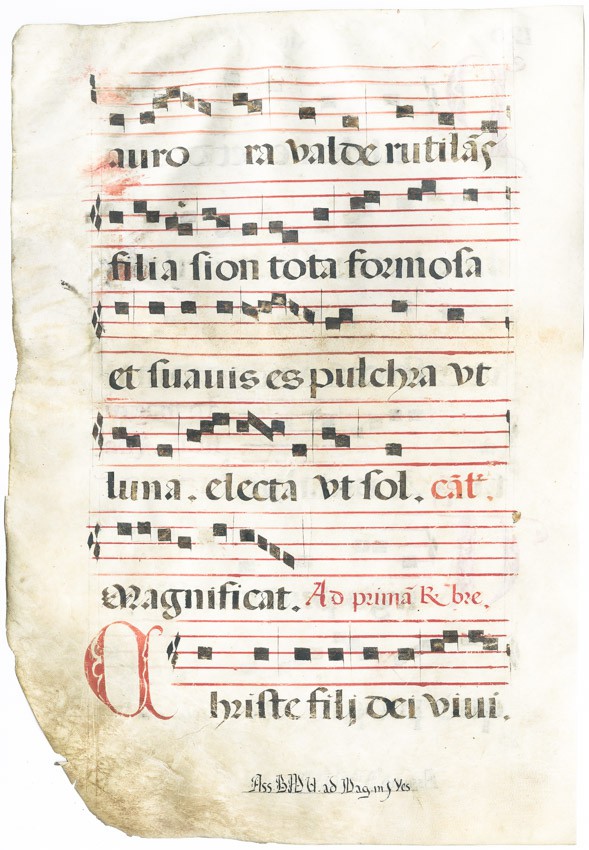 auro ra valde rutilãs
filia sion tota formosa
et suauis es pulchra vt
luna. electa vt sol. cãt͛.
Magnificat. Ad primã ℟ bre.
Christe filij dei viui.
Ass B.M.V. ad Mag. in